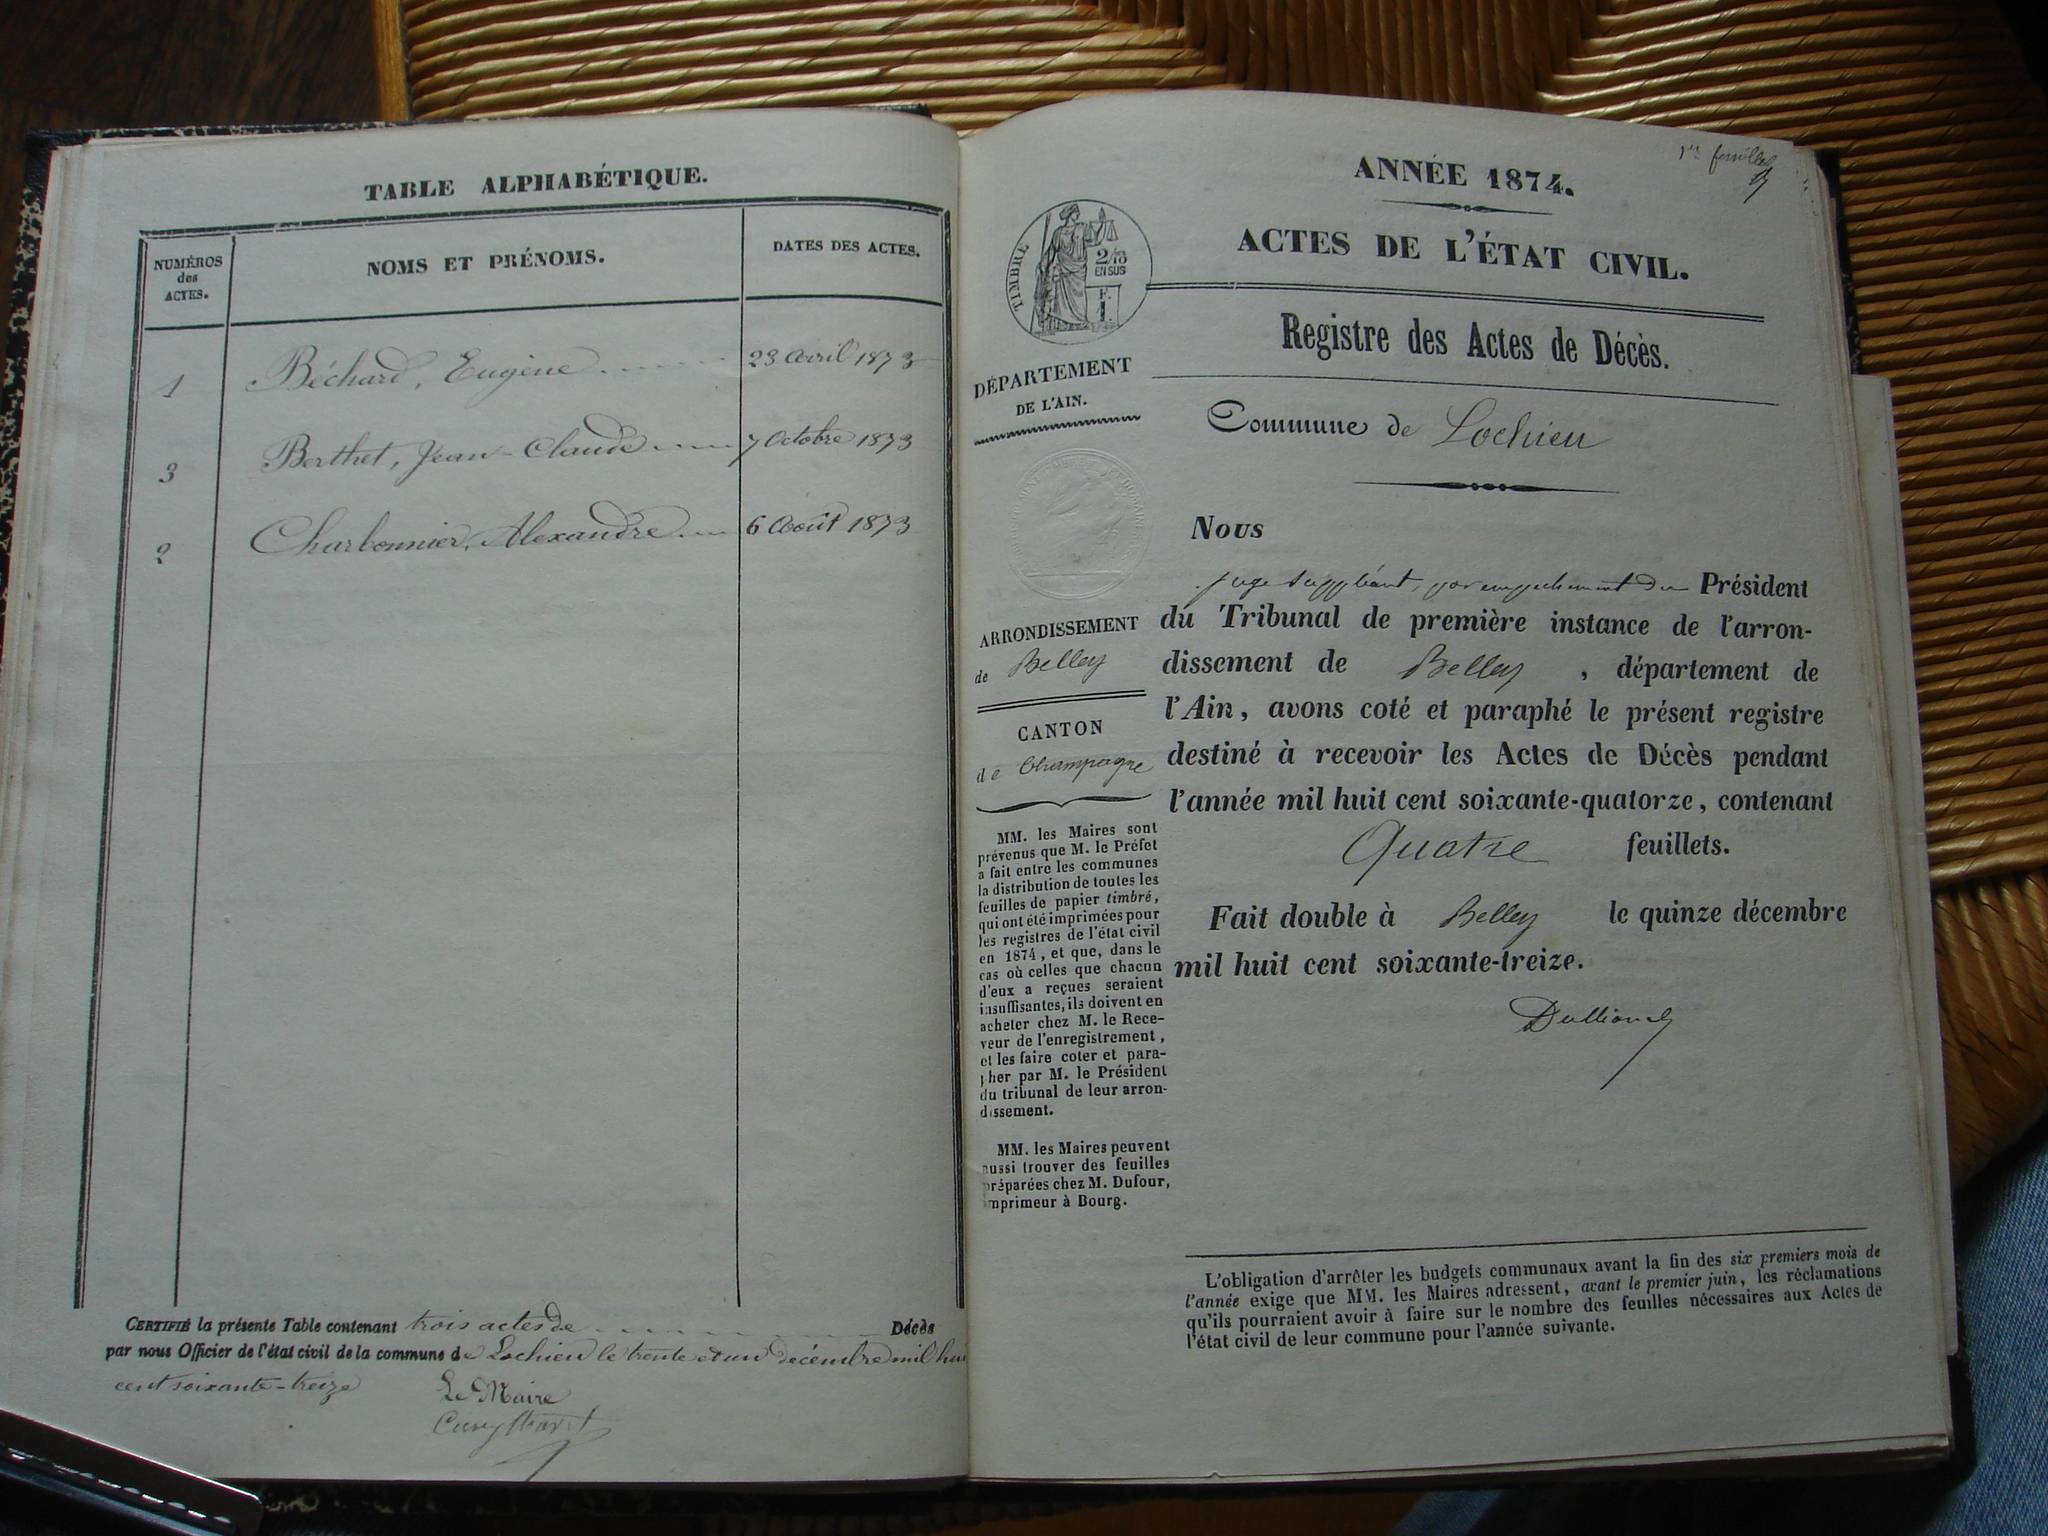 TABLE ALPHABÉTIQUE.
NUMÉROS
des
ACTES.
NOMS ET PRÉNOMS.
DATES DES ACTES.
1 Béchard, Eugène 23 avril 1873
3 Berthet, Jean-Claude 7 Octobre 1873
2 Charbonnier, Alexandre 6 Août 1873
CERTIFIÉ la présente Table contenant trois actes de Décès
par nous Officier de l'état civil de la commune de Lochieu le trente et un décembre mil hui
cent soixante-treize
Le Maire
1er feuillet
ANNÉE 1874.
ACTES DE L'ÉTAT CIVIL.
TIMBRE
2/10
EN SUS
F.
1
Registre des Actes de Décès.
DÉPARTEMENT
DE L'AIN.
Commune de Lochieu
ARRONDISSEMENT
de Belley
CANTON
de Champagne
MM. les Maires sont
prévenus que M. le Préfet
a fait entre les communes
la distribution de toutes les
feuilles de papier timbré,
qui ont été imprimées pour
les registres de l'état civil
en 1874, et que, dans le
cas où celles que chacun
d'eux a reçues seraient
insuffisantes, ils doivent en
acheter chez M. le Rece-
veur de l'enregistrement,
et les faire coter et para-
pher par M. le Président
du tribunal de leur arron-
dissement.
MM. les Maires peuvent
aussi trouver des feuilles
préparées chez M. Dufour,
imprimeur à Bourg.
Nous
juge suppléant, par empechement du Président
du Tribunal de première instance de l'arron-
dissement de Belley, département de
l'Ain, avons coté et paraphé le présent registre
destiné à recevoir les Actes de Décès pendant
l'année mil huit cent soixante-quatorze, contenant
Quatre feuillets.
Fait double à Belley le quinze décembre
mil huit cent soixante-treize.
L'obligation d'arrêter les budgets communaux avant la fin des six premiers mois de
l'année exige que MM. les Maires adressent, avant le premier juin, les réclamations
qu'ils pourraient avoir à faire sur le nombre des feuilles nécessaires aux Actes de
l'état civil de leur commune pour l'année suivante.